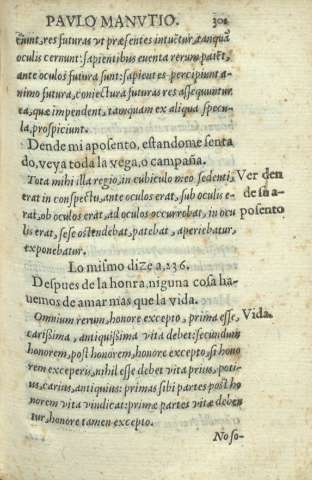 PAVLO MANVTIO. 301
ciunt, res futuras vt præsentes intuētur, tanquā
oculis cernunt: sapientibus euenta rerum patēt,
ante oculos futura sunt: sapiētes percipiunt a-
nimo futura, coniectura futuras res assequuntur
ea, quæ impendent, tamquam ex aliqua specu-
la, prospiciunt.
Dende mi aposento, estandome senta
do, veya toda la vega, o campaña.
Tota mihi illa regio, in cubiculo meo sedenti, Ver den
erat in conspectu, ante oculos erat, sub oculis e- de su a-
rat, ob oculos erat, ad oculos occurrebat, in ocu posento
lis erat, sese ostendebat, patebat, aperiebatur,
exponebatur.
Lo mismo dize a, 236.
Despues de la honra, ninguna cosa ha
uemos de amar mas que la vida.
Omnium rerum, honore excepto, prima esse, Vida.
carissima, antiquissima vita debet: secundum
honorem, post honorem, honore excepto, si hono
rem exceperis, nihil esse debet vita prius, poti-
us, carius, antiquius: primas sibi partes post ho
norem vita vindicat: primæ partes vitæ deben
tur, honore tamen excepto.
No so-